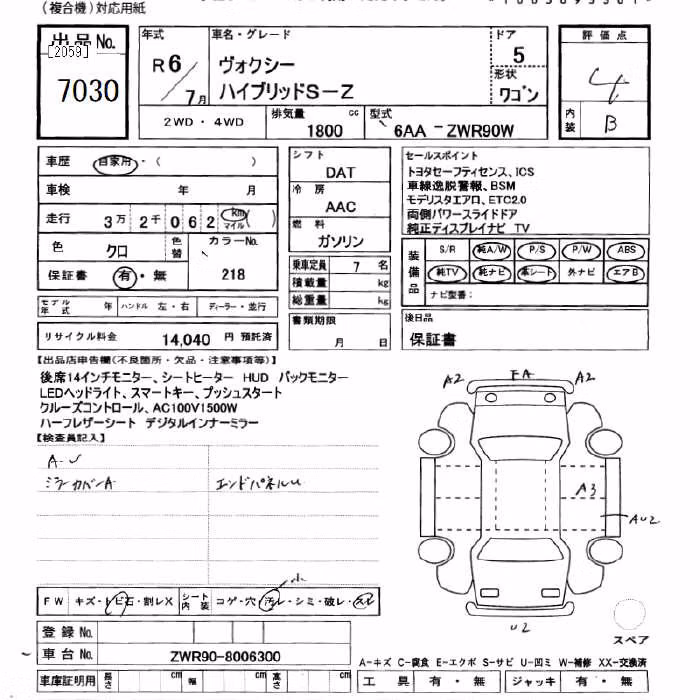 (複合機)対応用紙
出品No.
[2059]
7030
年式
R6/7月
車名・グレード
ヴォクシー
ハイブリッドS-Z
ドア
5
形状
ワゴン
評価点
4
内装
B
2WD・4WD
排気量
1800 cc
型式
6AA-ZWR90W
車歴 自家用・( )
車検 年 月
走行 3万2千062 km マイル ( )
色 クロ
色替
カラーNo.
218
保証書 有・無
モデル年式 年 ハンドル 左・右 ディーラー・並行
リサイクル料金 14,040 円 預託済
シフト
DAT
冷房
AAC
燃料
ガソリン
乗車定員 7 名
積載量 kg
総重量 kg
書類期限
月 日
セールスポイント
トヨタセーフティセンス、ICS
車線逸脱警報、BSM
モデリスタエアロ、ETC2.0
両側パワースライドドア
純正ディスプレイナビ TV
装備品
S/R 純A/W P/S P/W ABS
純TV 純ナビ 革シート 外ナビ エアB
ナビ型番:
後日品
保証書
【出品店申告欄(不良箇所・欠品・注意事項等)】
後席14インチモニター、シートヒーター HUD バックモニター
LEDヘッドライト、スマートキー、プッシュスタート
クルーズコントロール、AC100V1500W
ハーフレザーシート デジタルインナーミラー
【検査員記入】
A・U
ミラーカバーA
エンドパネルU
A2
FA
A2
A3
AU2
U2
スペア
小
FW キズ・トビ石・割レX
シート内装 コゲ・穴・汚レ・シミ・破レ・スレ
登録No.
車台No. ZWR90-8006300
車庫証明用 長さ cm 幅 cm 高さ cm
A-キズ C-腐食 E-エクボ S-サビ U-凹ミ W-補修 XX-交換済
工具 有・無 ジャッキ 有・無